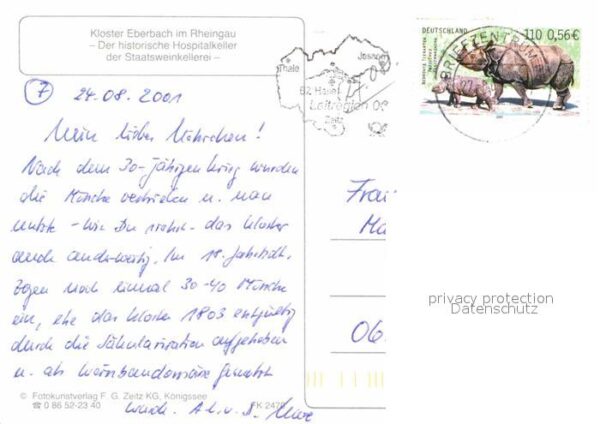 Kloster Eberbach im Rheingau
– Der historische Hospitalkeller
der Staatsweinkellerei –
7
24.08.2001
Mein liebes !
Nach dem 30-jährigen Krieg wurden
die Mönche vertrieben u. man
nutzte - wie Du siehst - das Kloster
auch anderweitig. Im 18. Jahrhdt.
zogen noch einmal 30-40 Mönche
ein, ehe das Kloster 1803 endgültig
durch die Säkularisation aufgehoben
u. als Weinbaudomäne genutzt
wurde. A. l. v. D.
© Fotokunstverlag F. G. Zeitz KG, Königssee
☎ 0 86 52-23 40
FK 2470
DEUTSCHLAND
110 0,56€
BRIEFZENTRUM
Thale
Jessen
Leitregion 06
Zeitz
Frau
06
privacy protection
Datenschutz